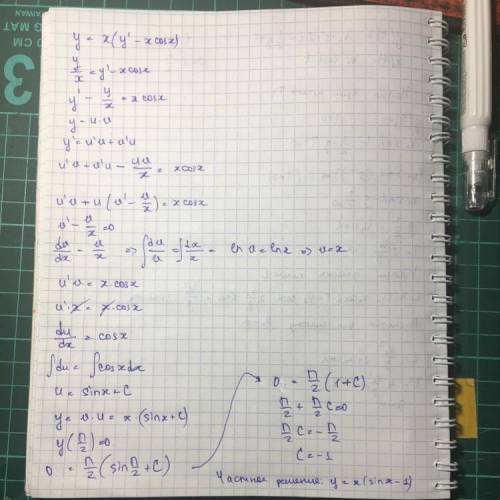 y = x(y' - x cosx)
y/x = y' - x cosx
y' - y/x = x cosx
y = u·v
y' = u'v + v'u
u'v + v'u - uv/x = x cosx
u'v + u(v' - v/x) = x cosx
v' - v/x = 0
dv/dx = v/x => ∫dv/v = ∫dx/x = ln v = ln x => v = x
u'v = x·cosx
u'·x = x·cosx
du/dx = cosx
∫du = ∫cosxdx
u = sinx + C
y = v·u = x·(sinx + C)
y(π/2) = 0
0 = π/2 (sin π/2 + C)
0 = π/2 (1 + C)
π/2 + π/2 C = 0
π/2 C = -π/2
C = -1
Частное решение: y = x(sinx - 1)
3